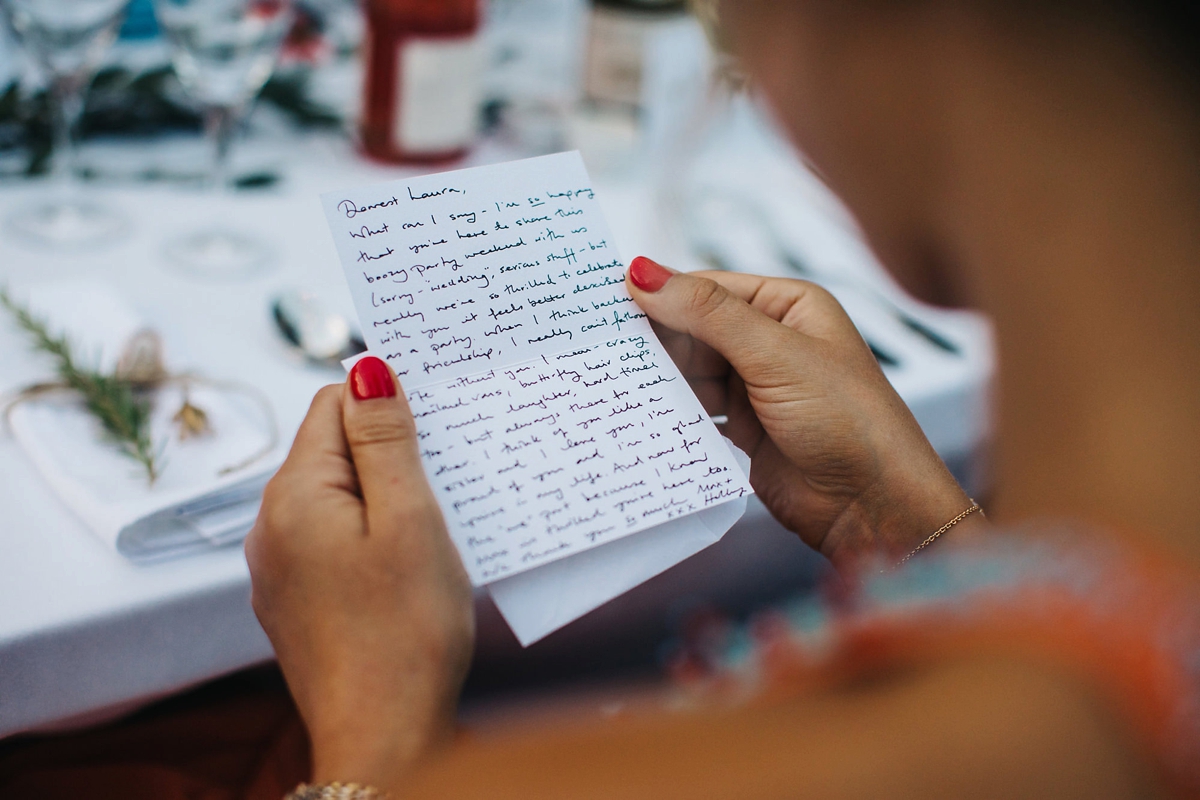 Dearest Laura,
What can I say - I'm so happy
that you're here to share this
boozy party weekend with us
(sorry - "wedding", serious stuff - but
really we're so thrilled to celebrate
with you it feels better described
as a party. When I think back on
friendship, I really can't fathom
life without you. I mean - crazy
vans, butterfly hair clips,
so much laughter, hard times
too - but always there for each
other. I think of you like a
sister and I love you, I'm
proud of you and I'm so glad
you're in my life. And now for
the 'we' part because I know
Max + are so thrilled you're here too.
thank you so much
xxx Holly